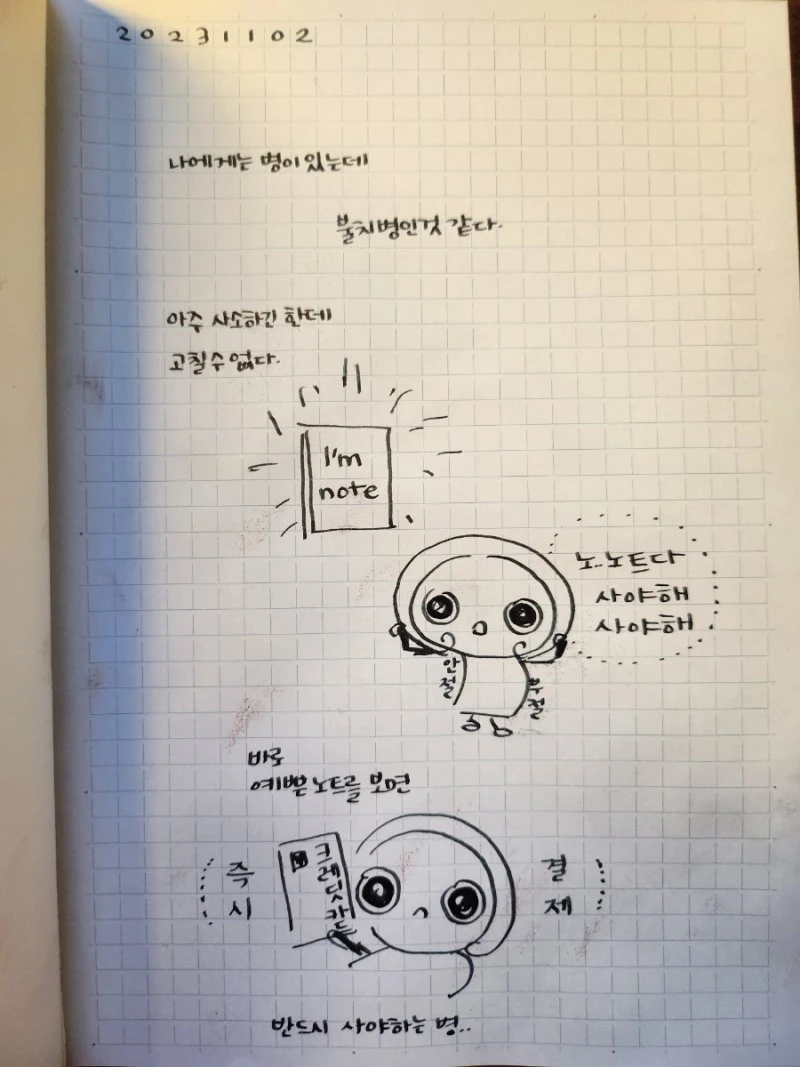 20231102
나에게는 병이 있는데
불치병인것 같다.
아주 사소하긴 한데
고칠수 없다.
I'm
note
노..노트다
사야해
사야해
안절
부절
바로
예쁜 노트를 보면
크레딧카드
즉시
결제
반드시 사야하는 병..